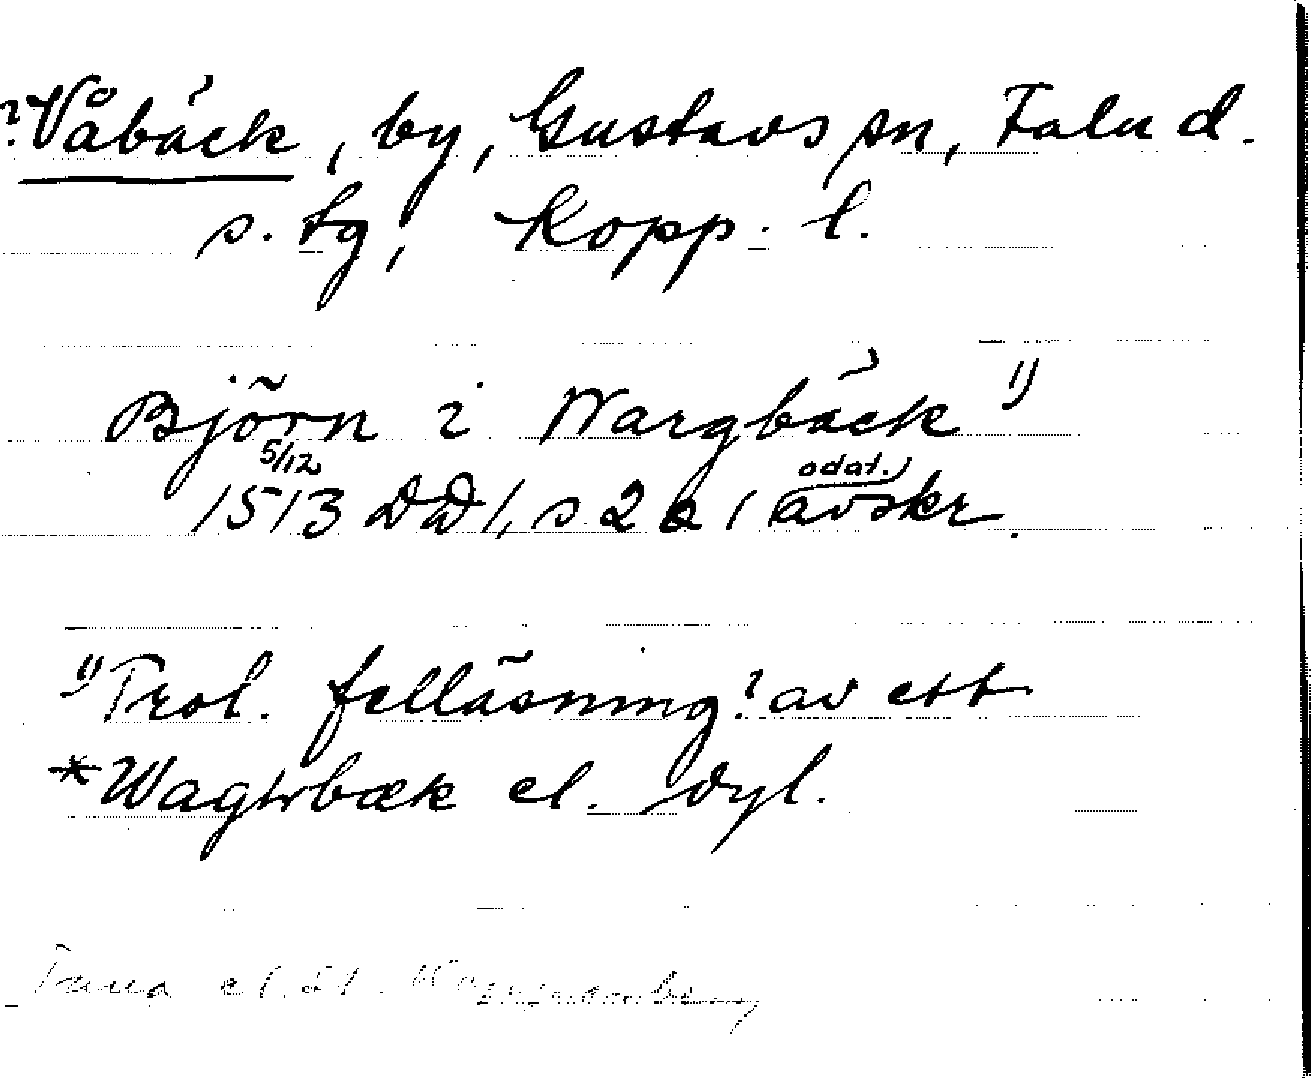 ?Våbäck, by, Gustavs sn, Falu d.
s. tg, Kopp. l.
Björn i Wargbäck 1)
5/12 odat.
1513 DD 1, s 221 avskr.
1) Trol. felläsning? av ett
*Waghbæk el. dyl.
Tuna el. St.